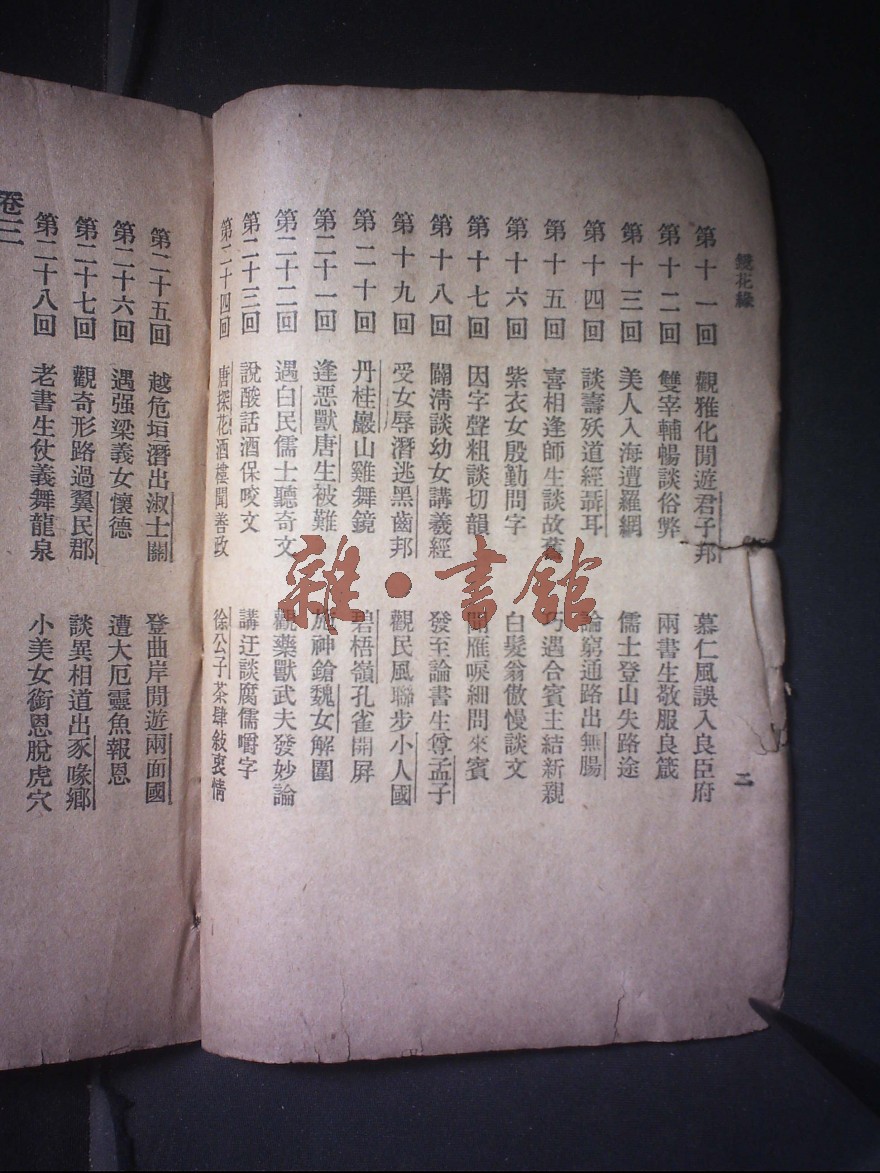 鏡花緣
二
第十一回 觀雅化閒遊君子邦 慕仁風誤入良臣府
第十二回 雙宰輔暢談俗弊 兩書生敬服良箴
第十三回 美人入海遭羅網 儒士登山失路途
第十四回 談壽殀道經聶耳 論窮通路出無腸
第十五回 喜相逢師生談故舊 巧遇合賓主結新親
第十六回 紫衣女殷勤問字 白髮翁傲慢談文
第十七回 因字聲粗談切韻 聞雁唳細問來賓
第十八回 闢淸談幼女講羲經 發至論書生尊孟子
第十九回 受女辱潛逃黑齒邦 觀民風聯步小人國
第二十回 丹桂巖山雞舞鏡 碧梧嶺孔雀開屛
第二十一回 逢惡獸唐生被難 施神鎗魏女解圍
第二十二回 遇白民儒士聽奇文 觀藥獸武夫發妙論
第二十三回 說酸話酒保咬文 講迂談腐儒嚼字
第二十四回 唐探花酒樓聞善政 徐公子茶肆敍衷情
第二十五回 越危垣潛出淑士關 登曲岸閒遊兩面國
第二十六回 遇强梁義女懷德 遭大厄靈魚報恩
第二十七回 觀奇形路過翼民郡 談異相道出豕喙鄉
第二十八回 老書生仗義舞龍泉 小美女銜恩脫虎穴
卷三
雜·書館